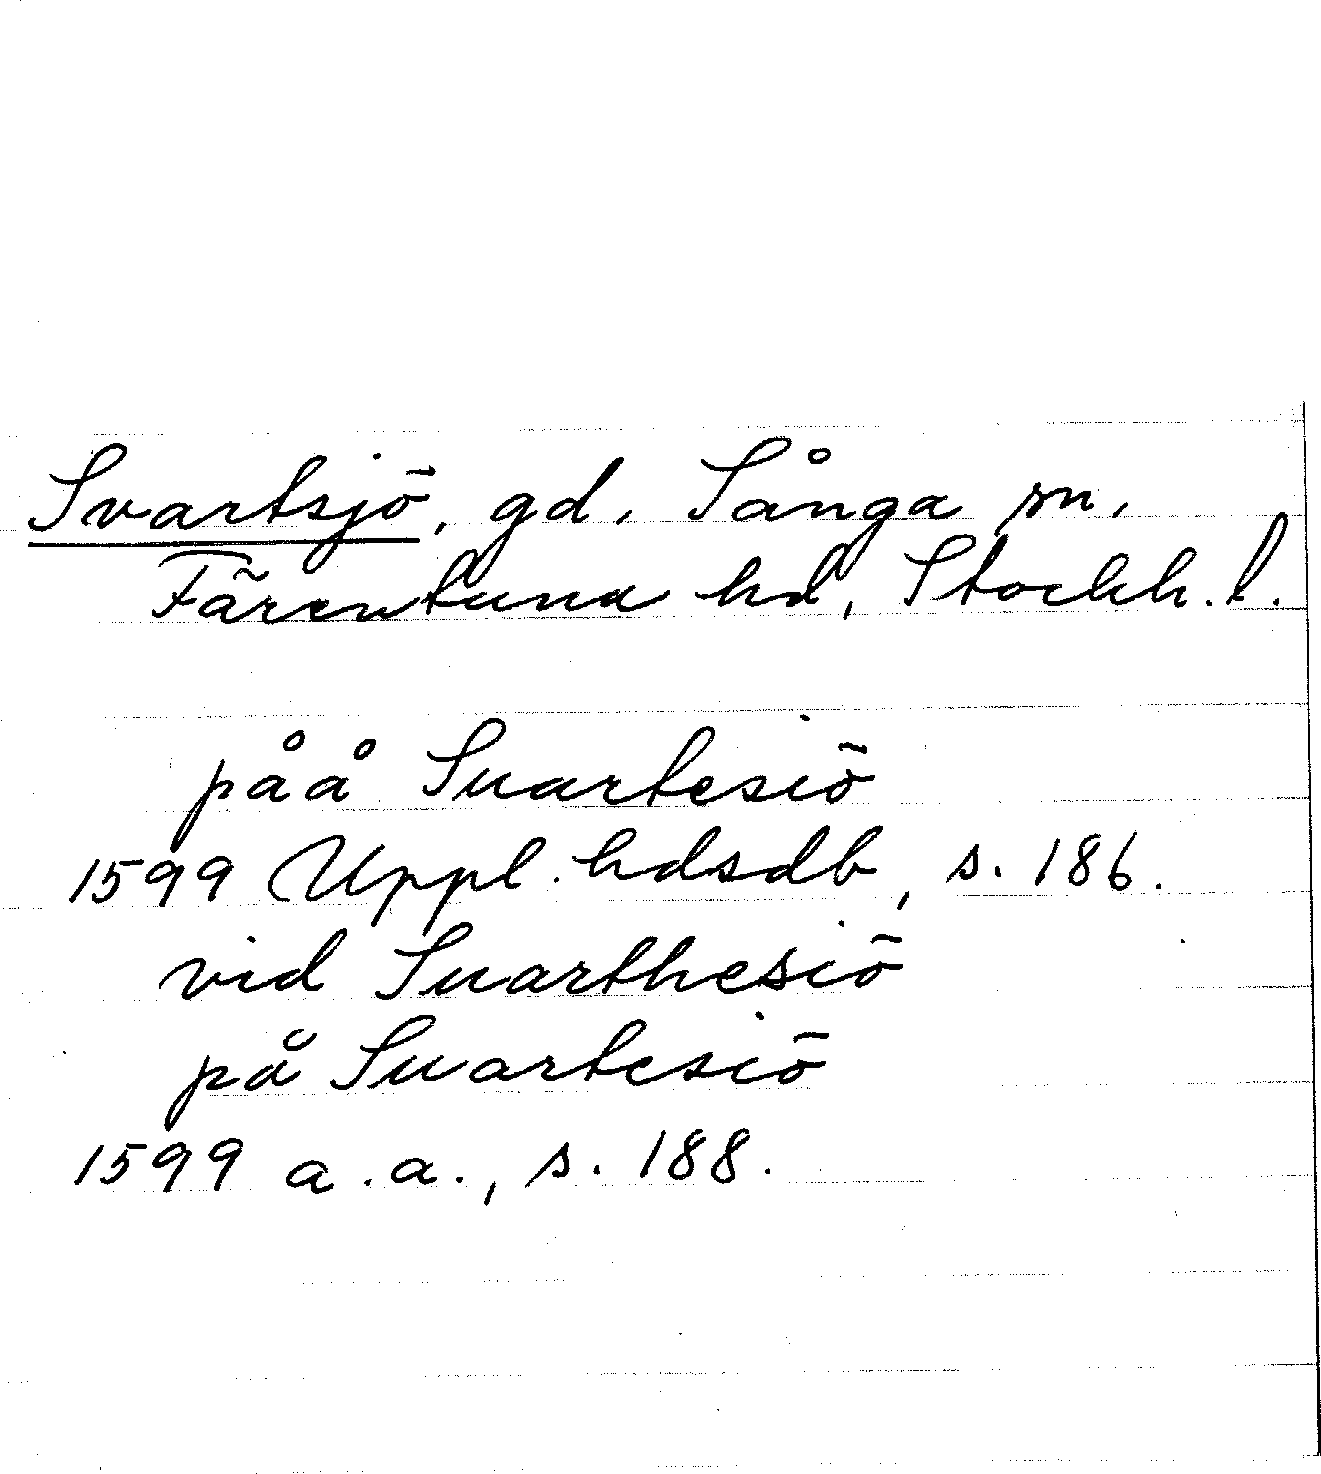 Svartsjö, gd, Sånga sn,
Färentuna hd, Stockh. l.
påå Suartesiö
1599 Uppl. hdsdb, s. 186.
vid Suarthesiö
på Suartesiö
1599 a.a., s. 188.